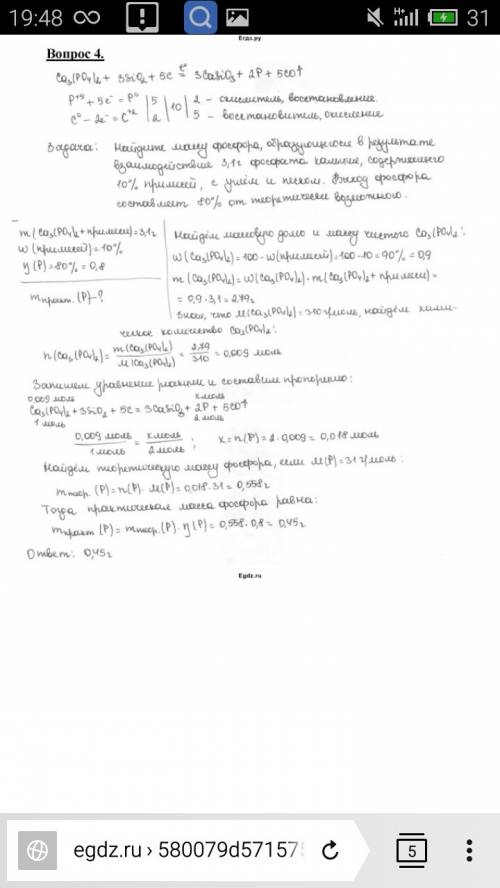 19:48 31
Егдз.ру
Вопрос 4.
Ca₃(PO₄)₂ + 3SiO₂ + 5C =t° 3CaSiO₃ + 2P + 5CO↑
P⁺⁵ + 5e⁻ = P⁰ | 5 | 10 | 2 – окислитель, восстановление
C⁰ – 2e⁻ = C⁺² | 2 | | 5 – восстановитель, окисление
Задача: Найдите массу фосфора, образующегося в результате
взаимодействие 3,1г фосфата кальция, содержащего
10% примесей, с углём и песком. Выход фосфора
составляет 80% от теоретически возможного.
m(Ca₃(PO₄)₂ + примеси) = 3,1г
w(примесей) = 10%
η(P) = 80% = 0,8
mпракт.(P) – ?
Найдём массовую долю и массу чистого Ca₃(PO₄)₂:
w(Ca₃(PO₄)₂) = 100 - w(примесей) = 100 - 10 = 90% = 0,9
m(Ca₃(PO₄)₂) = w(Ca₃(PO₄)₂) · m(Ca₃(PO₄)₂ + примеси) =
= 0,9 · 3,1 = 2,79г
Зная, что M(Ca₃(PO₄)₂) = 310 г/моль, найдём хими-
ческое количество Ca₃(PO₄)₂:
n(Ca₃(PO₄)₂) = m(Ca₃(PO₄)₂) / M(Ca₃(PO₄)₂) = 2,79 / 310 = 0,009 моль
Запишем уравнение реакции и составим пропорцию:
0,009 моль x моль
Ca₃(PO₄)₂ + 3SiO₂ + 5C = 3CaSiO₃ + 2P + 5CO↑
1 моль 2 моль
0,009 моль / 1 моль = x моль / 2 моль ; x = n(P) = 2 · 0,009 = 0,018 моль
Найдём теоретическую массу фосфора, если M(P) = 31 г/моль:
mтеор.(P) = n(P) · M(P) = 0,018 · 31 = 0,558г
Тогда практическая масса фосфора равна:
mпракт.(P) = mтеор.(P) · η(P) = 0,558 · 0,8 = 0,45г
Ответ: 0,45г
Egdz.ru
egdz.ru › 580079d571575 5